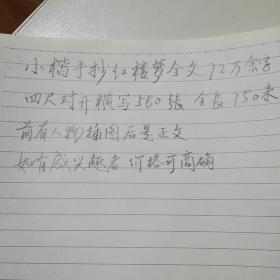 小楷手抄红楼梦全文92万余字
四尺对开横写550張 全長750米
前有人物插图后是正文
如有感兴趣者 价格可商确